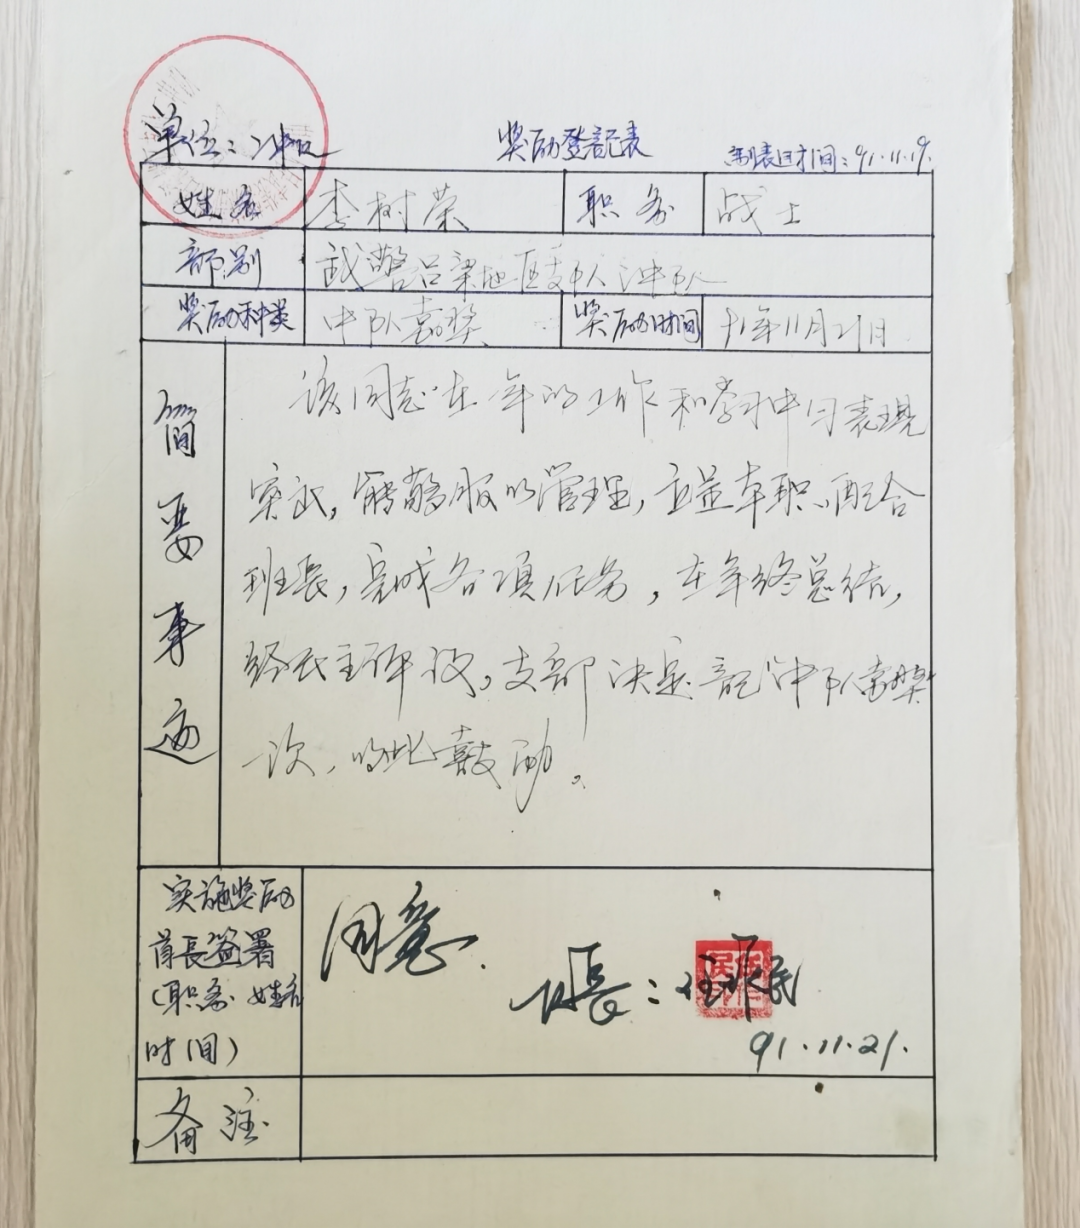 单位：二中队 奖励登记表 制表时间：91.11.19.
姓名 李树荣 职务 战士
部别 武警吕梁地区支队二中队
奖励种类 中队嘉奖 奖励时间 91年11月21日
简要事迹
该同志在一年的工作和学习中表现
实，服从管理，配合
班长，完成各项任务，在年终总结，
经民主评议，支部决定记中队嘉奖
一次，以此鼓励。
实施奖励
首長签署
（职务 姓名
时间）
同意.
队長：任民
91.11.21.
备注